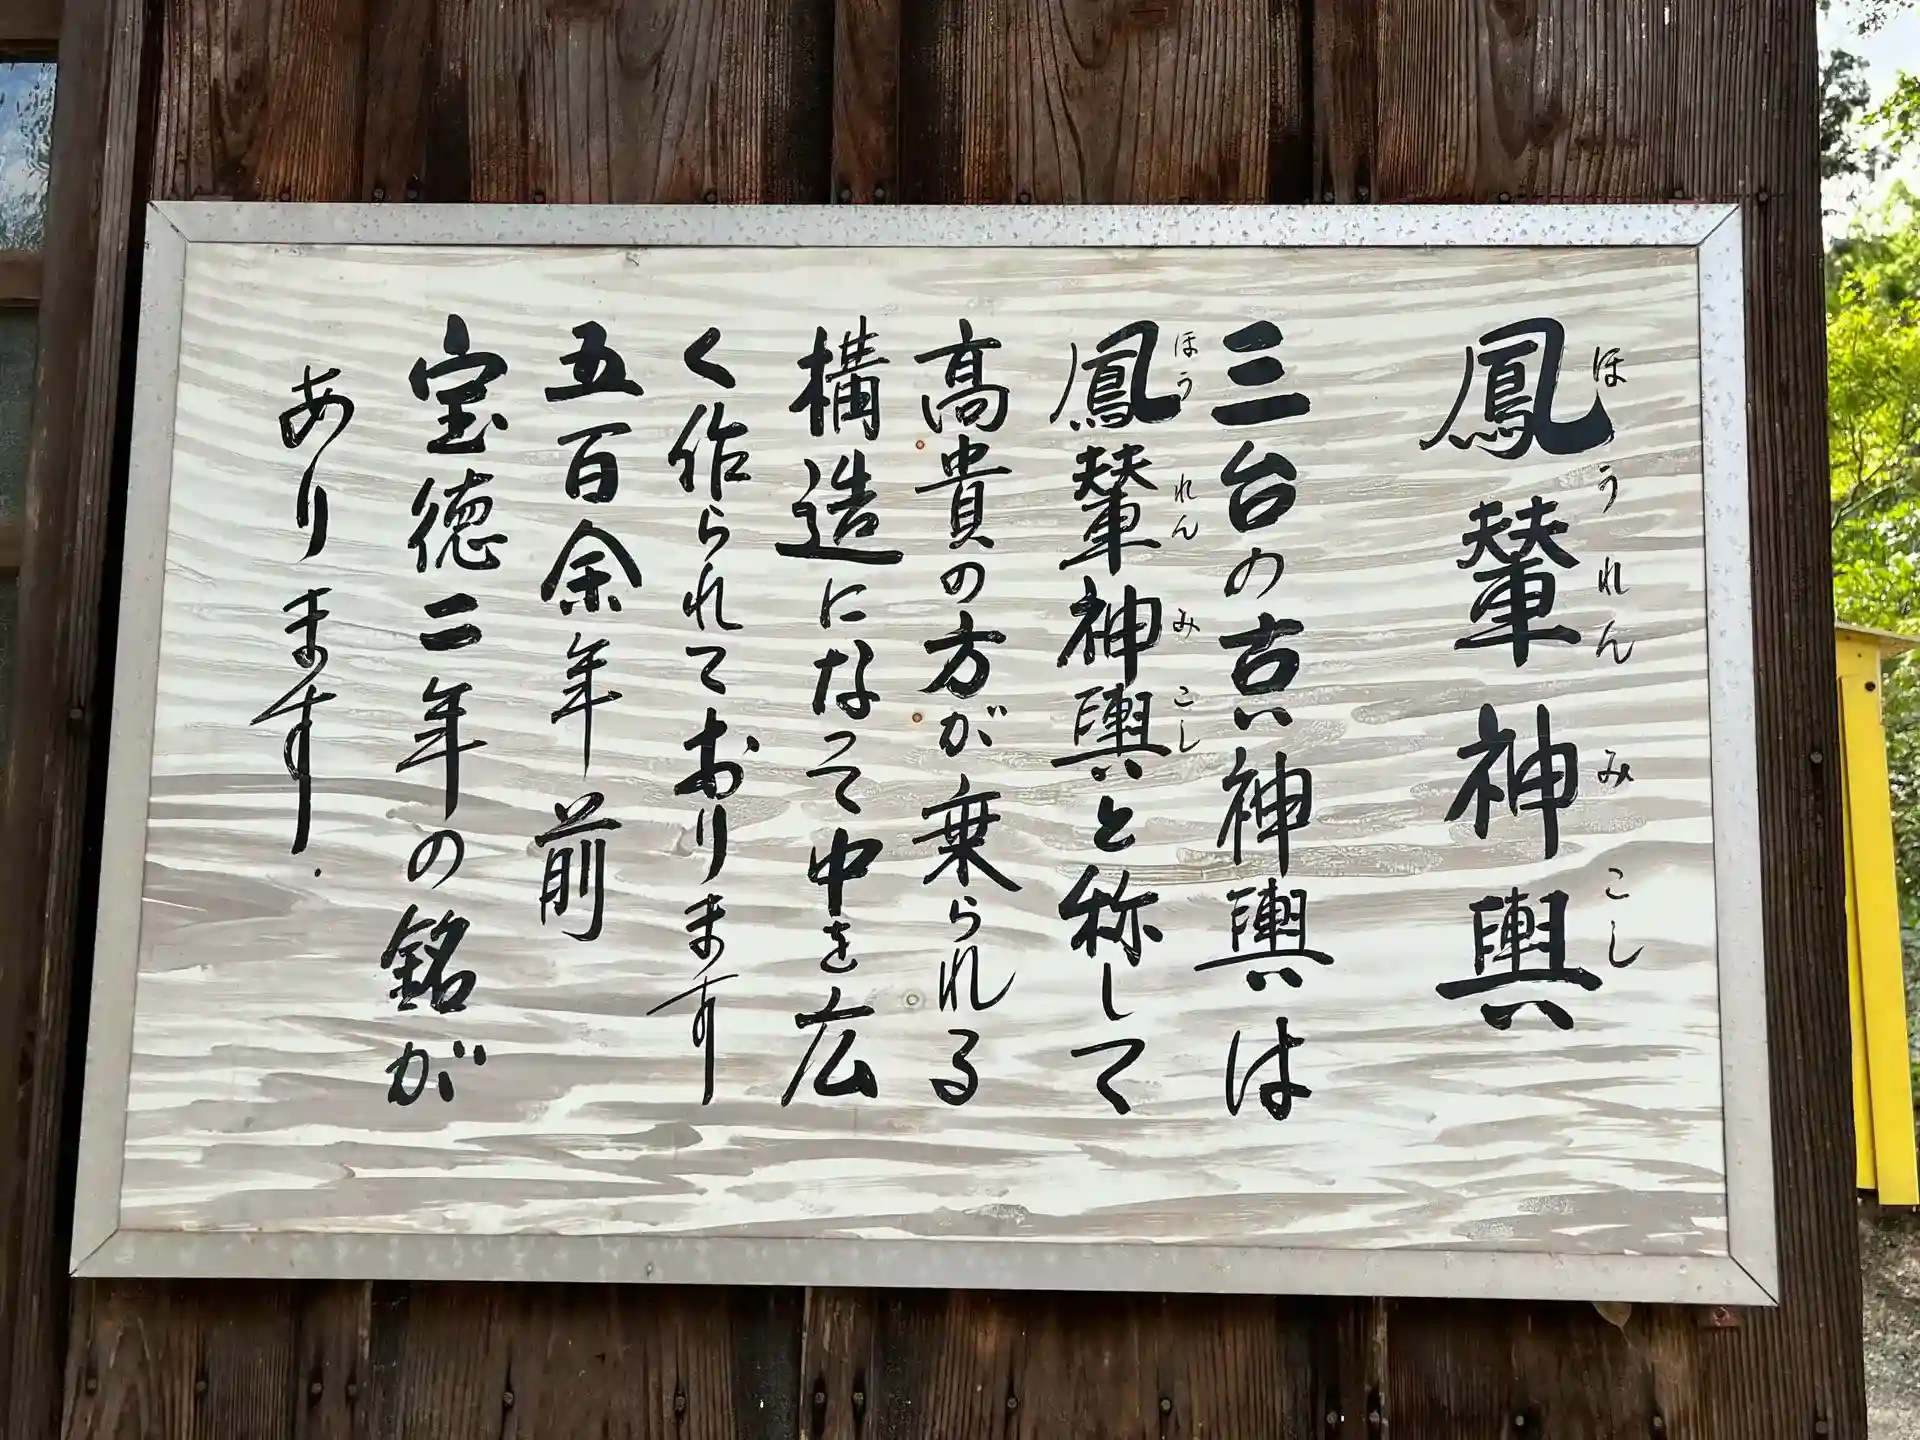 鳳輦神輿
ほうれんみこし
三台の古い神輿は
鳳輦神輿と称して
ほうれんみこし
高貴の方が乗られる
構造になって中を広
く作られております
五百余年前
宝徳二年の銘が
あります.